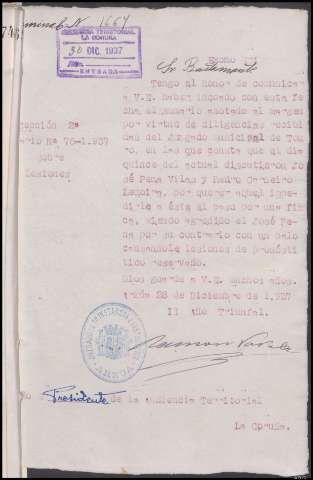 Criminal N. 1667
AUDIENCIA TERRITORIAL
LA CORUÑA
30 DIC. 1937
ENTRADA
Excmo
Sr
Tengo el honor de comunicar
a V.E. haber incoado con esta fe
cha el sumario anotado al margen
por virtud de diligencias recibi
das del Juzgado municipal de
ro, en las que consta que el día
quince del actual discutieron Jo
sé Pena Vilas y Pedro Carneiro
por querer aquel impe
dir a éste el paso por una fin
ca, siendo agredido el José Pe
na por su contrario con un palo
causandole lesiones de pronóstic
o reservado.
Dios guarde a V.E. muchos años.
28 de Diciembre de 1.937
II Año Triunfal.
ección 2ª
ario Nº 76-1.937
sobre
Lesiones
Presidente de la Audiencia Territorial
La Coruña.